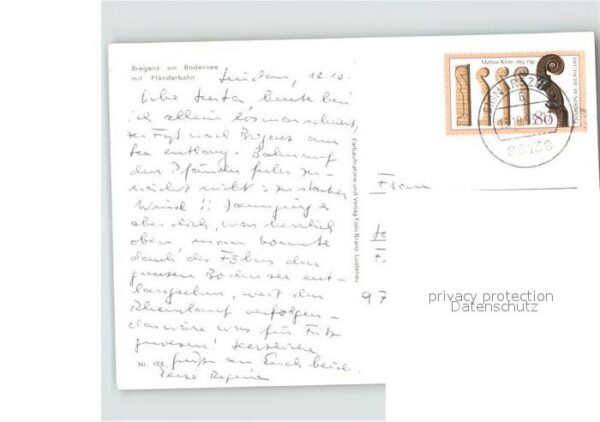 Bregenz am Bodensee
mit Pfänderbahn
Lindau, 12.10.
Liebe heute bin
ich allein losmarschiert,
zu Fuß nach Bregenz am
See entlang. Bahn auf
den Pfänder fuhr zu-
nächst nicht: zu starker
Wind!! Dann ging's
aber doch, war herrlich
oben, man konnte
dank des Föhns den
ganzen Bodensee ent-
langsehen, weit den
Rheinlauf verfolgen -
das wäre was für Fritz
gewesen! Herzliche
Grüße an Euch beide
Eure Regina
Nr. 101
Farbaufnahme und Verlag Foto Branz, Lustenau
Mathias Klotz · 1653-1743
DEUTSCHE BUNDESPOST
80
88138
Frau
97
privacy protection
Datenschutz